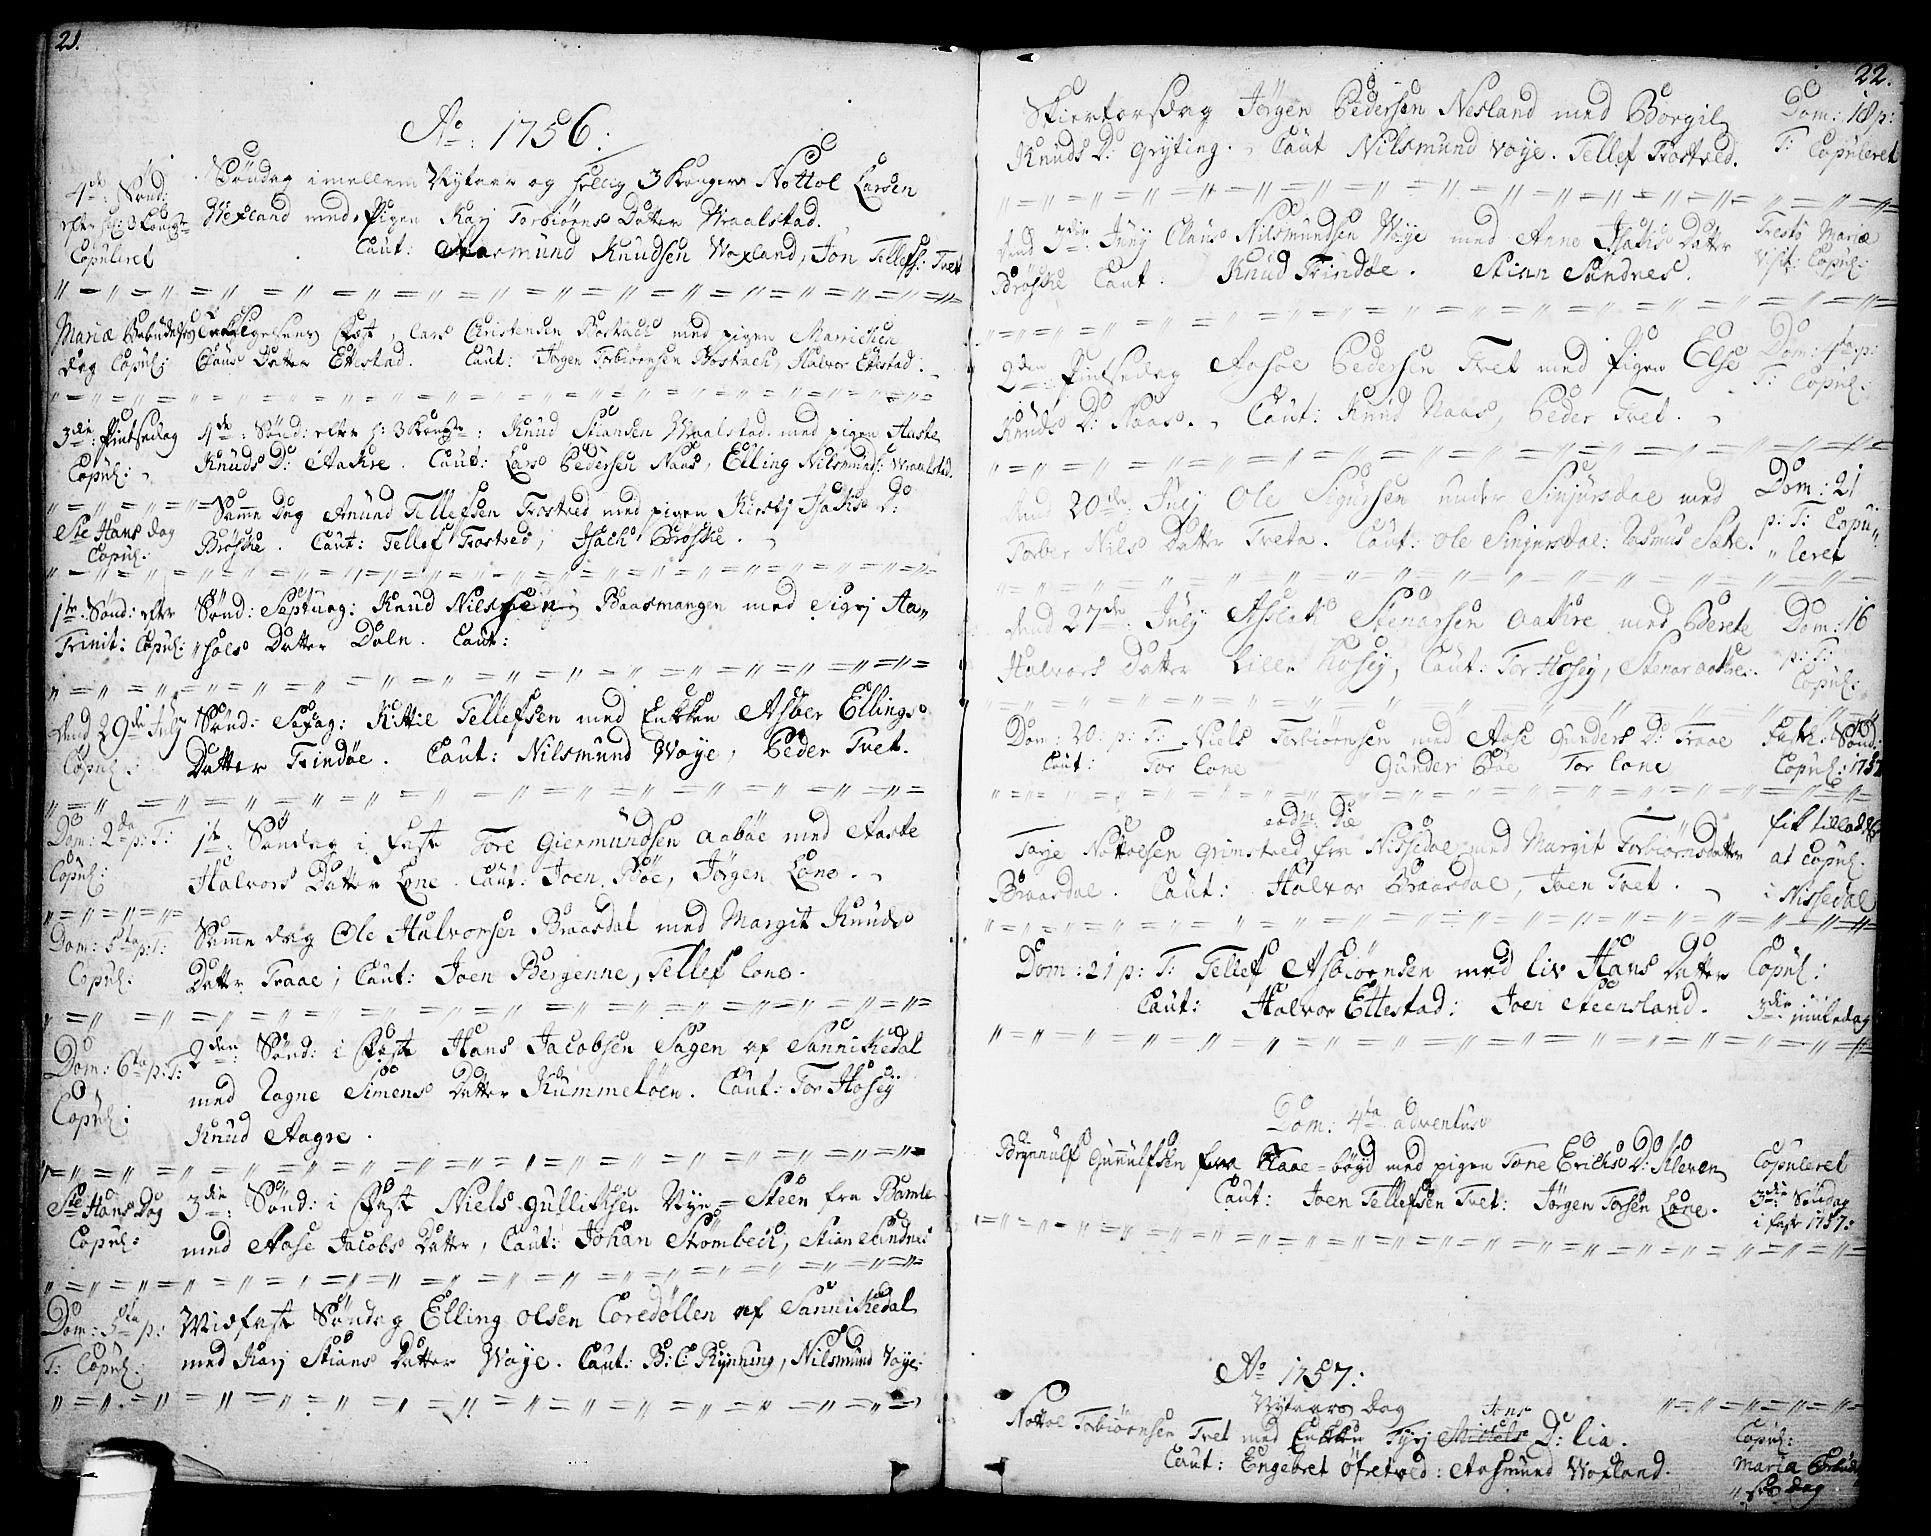 21.
Ao: 1756:
4de: Sønd:
efter H: 3 Kong:
Copuleret
Søndag imellem Nytaar og hellig 3 Konger Nottol Larsen
Woxland med Pigen Karj Torbiørns Datter Wraalstad.
Caut: Aasmund Knudsen Woxland, Jon Tellefs: Tvet
Mariæ Bebudelses
dag Copul:
Fest, Lars Christensen Borstach med pigen Marrichen
Claus Datter Ettestad. Caut: Jørgen Torbiørnsen Borstach, Halvor Ettestad.
3die: Pintsedag
Copul:
4de: Sønd: efter h: 3 Konge: Knud Stiansen Wraalstad med pigen Aaste
Knuds D: Aakre. Caut: Lars Pedersen Naas, Elling Nilsmunds: Wraalstad.
Ste Hans dag
Copul:
Samme Dag Anund Tellefsen Trostved med pigen Kirstj Isachs D:
Brøsche. Caut: Tellef Trostved, Isach Brøsche.
1te: Sønd: efter
Trinit: Copul:
Sønd: Septuag: Knud Nilssen Baasmangen med Sigrj Aa„
„sols Datter Daln. Caut:
dend 29de July
Copul:
Sønd: Sexag: Kittil Tellefsen med Enkken Asber Ellings
Datter Trindøe. Caut: Nilsmund Woye, Peder Tvet.
Dom: 2da p: T:
Copul:
1te: Søndag i fast Tore Giermundsen Aabøe med Aaste
Halvors Datter Lone. Caut: Joen Bøe, Jørgen Lone.
Dom: 5ta p: T:
Copul:
Samme dag Ole Halvorsen Braasdal med Margit Knuds
Datter Traae, Caut: Joen Bergenne, Tellef Lone.
Dom: 6ta p: T:
Copul:
2den: Sønd: i Fast Hans Jacobsen Sagen af Sannikedal
med Ragne Simens Datter Kummeløen. Caut: Tor Hosøy
Knud Aagre.
Ste Hans Dag
Copul:
3die: Sønd: i Fast Niels Gullichsen Nye=Steen fra Bamle
med Aase Jacobs Datter, Caut: Johan Strømbech, Stian Sandnes
Dom: 5ta p:
T: Copul:
Midfaste Søndag Elling Olsen Coredøllen af Sannikedal
med Karj Stians Datter Woye. Caut: B: C Rynning, Nilsmund Voye:
22.
Skiertorsdag Jørgen Pedersen Nesland med Borgil
Knuds D: Gryting. Caut Nilsmund Voye. Tellef Trostved.
Dom: 18 p:
T: Copuleret
dend 3die Juny Claus Nilsmundsen Woye med Anne Isachs Datter
Brøsche Caut: Knud Trindøe. Stian Sandnes.
Festo Mariæ
Visit: Copul:
2den: Pintsedag Aasol Pedersen Tvet med Pigen Else
Knuds D: Naas. Caut: Knud Naas, Peder Tvet.
Dom: 4ta p:
T: Copul:
dend 20de July Ole Sigursen under Sinjursdal med
Torber Nils Datter Tveta. Caut: Ole Sinjursdal: Rasmus Sætre.
Dom: 21
p: T: Copu„
„leret
dend 27de: July Aslak Stenarsen Aakre med Berete
Halvors Datter Lille Hosøy, Caut: Tor Hosøy, Stenar Aakre.
Dom: 16
p: T:
Copul:
Dom: 20: p: T: Niels Torbiørnsen med Aase Gunders D: Traae
Caut: Tor Lone Gunder Bøe Tor Lone
Faste: Sønd:
Copul: 1757
eodem Die
Tarje Nottolsen Grimstved fra Nissedal med Margit Torbiørnsdatter
Braasdal. Caut: Halvor Braasdal, Joen Tvet.
fik tilladelse
at Copul:
i Nissedal
Dom: 21 p: T: Tellef Asbiørnsen med Liv Hans Datter
Caut: Halvor Ettestad: Joen Steensland.
Copul:
3die: juuledag
Dom: 4ta adventus
Brynnulf Gunnulfsen fra Flaae=bøyd med pigen Tone Erichs D: Kleven
Caut: Joen Tellefsen Tvet: Jørgen Torsen Lone.
Copuleret
3die: Søndag
i fast 1757:
Ao 1757:
Nytaars Dag
Nottol Torbiørnsen Tvet med Enkken Tyrj Michels Jens D: Lia.
Caut: Engebret Øfretved: Aasmund Woxland.
Copul:
Maria Bebud„
„elses dag